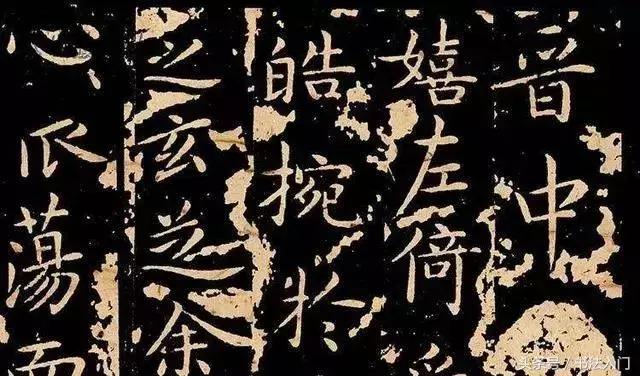 晉中
嬉左倚
皓捥於
之玄芝余
心蕩而
头条号 / 书法入门